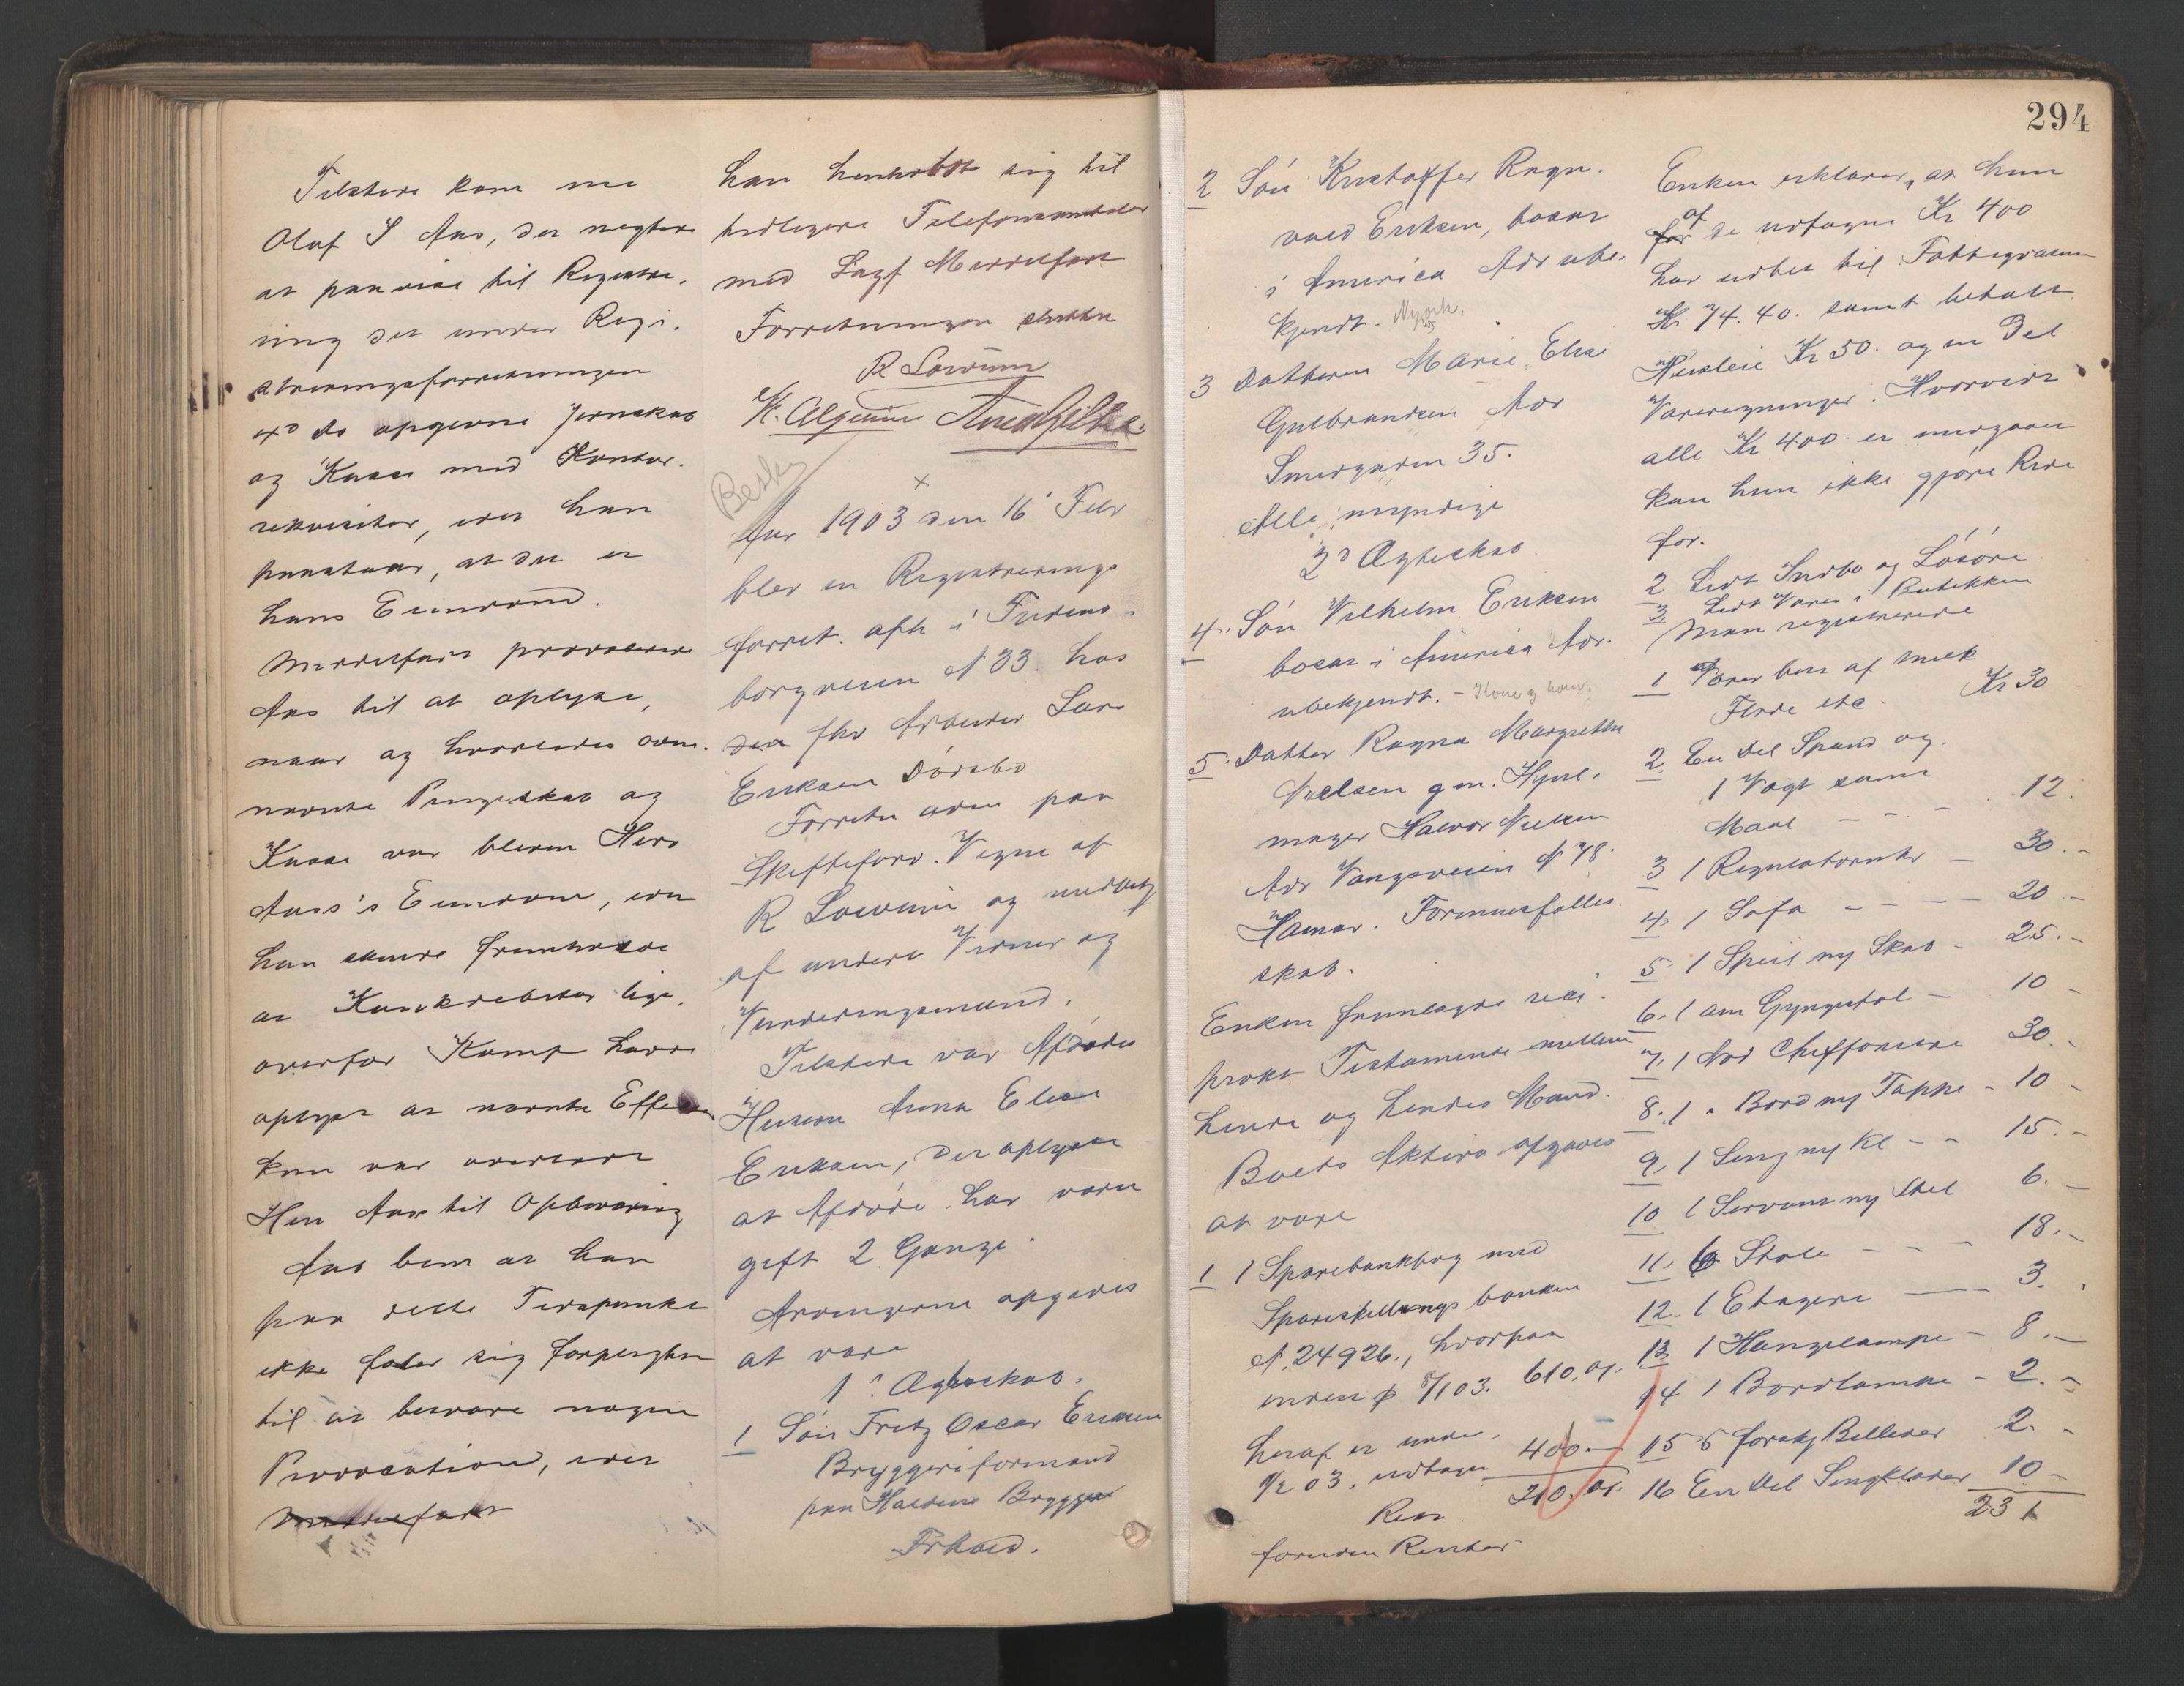 Tilstede kom nu
Olaf S Aas, der negter
at paavise til Registre-
ring det under Regi-
streringsforretningen
4de  opgivne Jernskab
og Kasse med Kontor-
rekvisiter, idet han
paastaar, at det er
hans Eiendom.
Meddelfart provocerede
Aas til at oplyse,
naar og hvorledes oven-
nævnte Pengeskab og
Kasse var bleven Herr
Aas's Eiendom, idet
han skulde fremholde
at  lige-
overfor Kemp havde
oplyst at nævnte Effekter
kun var overladt
Herr Aas til Opbevaring
Aas bem at han
paa dette Tidspunkt
ikke føler sig forpligtet
til at besvare nogen
Provocation, idet
han henholdt sig til
tidligere Telefonsamtaler
med Sagf Meddelfart
Forretningen sluttet
R Lowum

Besk
Aar 1903 den 16' Febr
blev en Registrerings
forret. afh i Fredens-
borgveien N 33. hos
den fhv Arbeider Lars
Eriksen Dørsbo
Forretn adm paa
Skifteforv. Vegne af
R Lowum og
af undert Vidner og
Vurderingsmænd.
Tilstede var Afdødes
Hustru Anna Elise
Eriksen, der oplyste
at Afdøde har været
gift 2 Gange.
Arvingerne opgaves
at være
1' Ægteskab.
1 Søn Fritz Oscar Eriksen
Bryggeriformand
paa Haldens Bryggeri
Frhald.
294
2 Søn Kristoffer Ragn-
vald Eriksen, bosat
i America Adr ube-
kjendt.
3 Datteren Marie Elise
Gulbrandsen Adr
Smedgaden 35.
Alle myndige
2d Ægteskab
4. Søn Vilhelm Eriksen
bosat i America Adr.
ubekjendt. -
5. Datter Ragna Margrethe
Nielsen g m. Hjul-
mager Halvor Nielsen
Adr Vangsveien N 78.
Hamar. Formuesfælles
skab.
Enken fremlagde reci-
prokt Testamente mellem
hende og hendes Mand.
Boets Aktiva opgaves
at være
1 1 Sparebankbog med
Spareskillings banken
N. 24926, hvorpaa
inden p 8/1 03. 610.01.
heraf er under
9/2 03. udtaget 400 -
Rest 210.01.
foruden Renter
Enken erklærer, at hun
af de udtagne Kr 400
har udbet til Fattigvæsen
Kr 74.40. samt betalt
Husleie Kr 50. og en Del
Vareregninger. Hvorvidt
alle Kr 400 er medgaaet
kan hun ikke gjøre Rede
for.
2 Lidt Indbo og Løsøre.
3. Lidt Varer i Butikken
Man registrerede
1 Varer best af Melk
Fløde etc. Kr 30 -
2. En Del Spand og
1 Vægt samt
Maal - - - 12.
3 1 Regulatoruhr - 30.-
4 1 Sofa - - - - 20 -
5. 1 Speil m Skab - 25.-
6. 1 am Gyngestol - 10 -
7. 1 Chiffoniere 30.-
8. 1 " Bord m Tæppe - 10 -
9. 1 Seng m Kl - - 15.-
10 1 Servant m Stel 6.-
11. 6 Stole - - - 18.-
12. 1 Etagere - - 3.
13 1 Hængelampe - 8.-
14 1 Bordlampe - 2.-
15 5 forskj Billeder 2. -
16 En Del Sengklæder 10 -
231